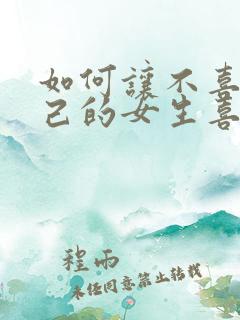 如何讓不喜
己的女生喜
程雨
未經同意禁止轉載